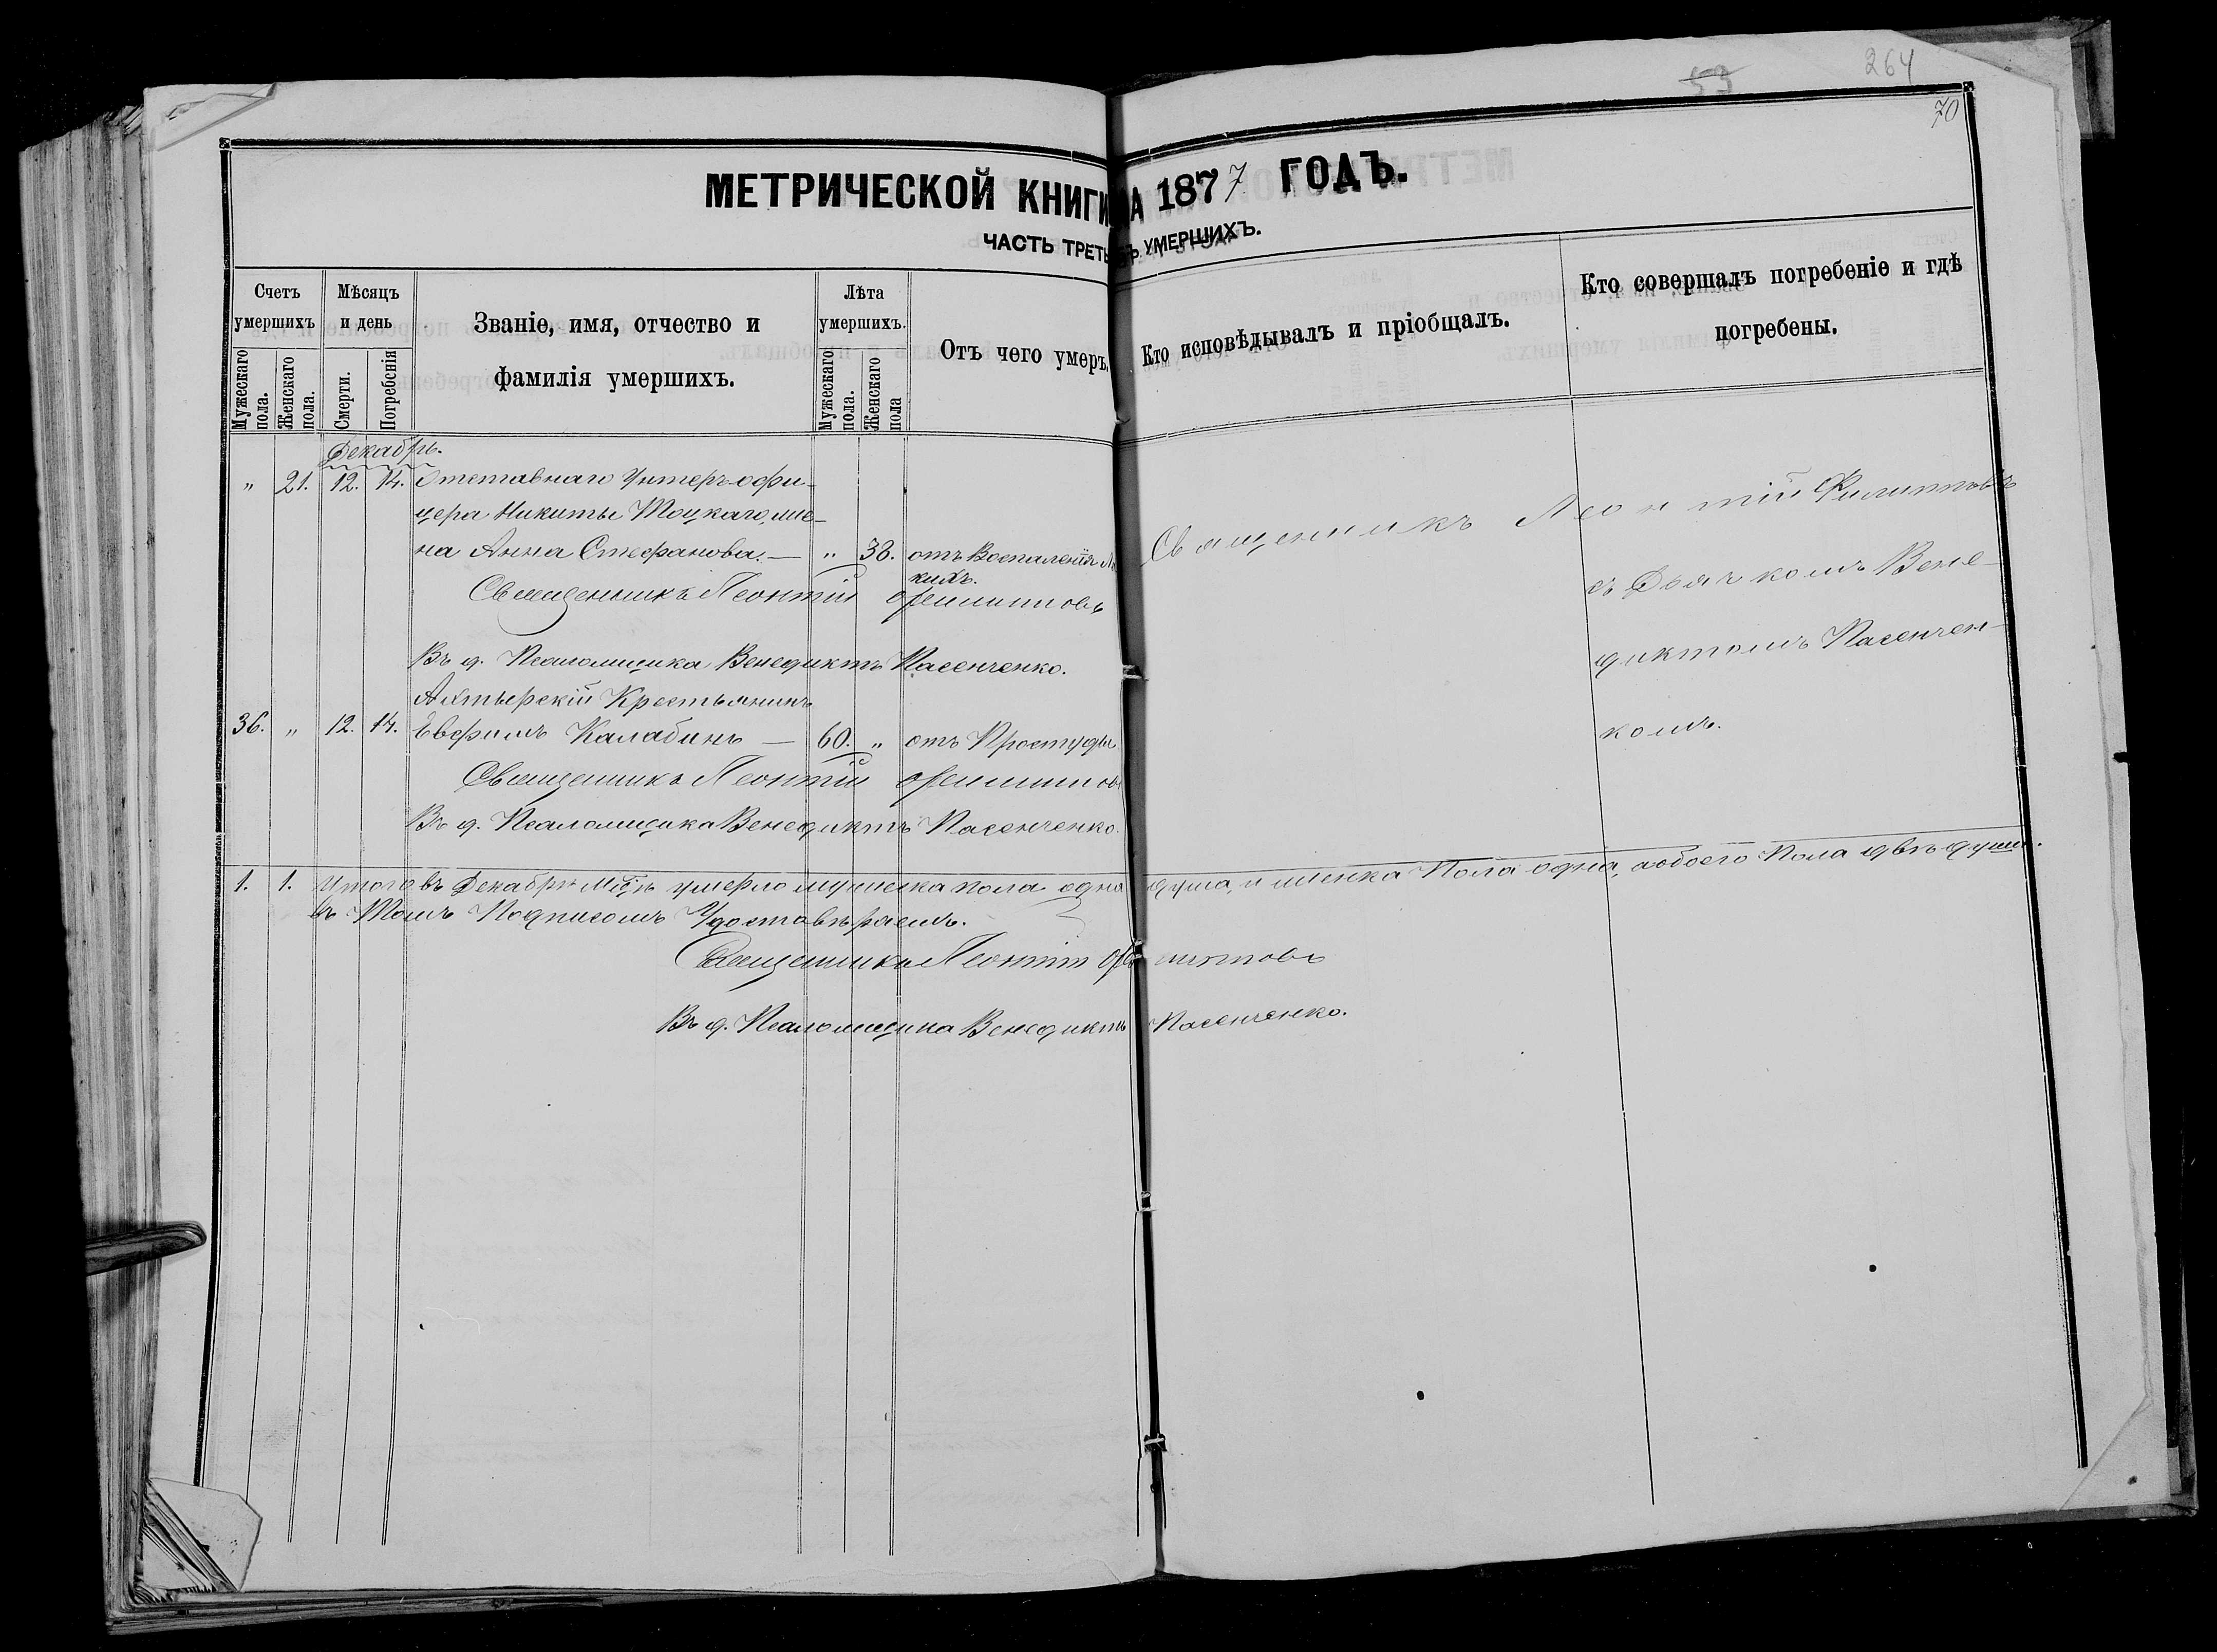 53
264
70
МЕТРИЧЕСКОЙ КНИГИ НА 1877 ГОДЪ.
ЧАСТЬ ТРЕТЬЯ УМЕРШИХЪ.
Счетъ умершихъ
Мужескаго пола.
Женскаго пола.
Мѣсяцъ и день
Смерти.
Погребенія
Званіе, имя, отчество и
фамилія умершихъ.
Лѣта умершихъ.
Мужескаго пола.
Женскаго пола
Отъ чего умеръ.
Кто исповѣдывалъ и пріобщалъ.
Кто совершалъ погребеніе и гдѣ
погребены.
Декабрь.
" 21. 12. 14. Отставнаго Унтеръ-офи-
цера Никиты Тоцкаго, же-
на Анна Стефанова. — " 38. отъ Воспаленія Лег
кихъ.
Священникъ Леонтій Филипповъ
съ Дьячкомъ Вене-
диктомъ Пасенчен-
комъ.
Священникъ Леонтій Филипповъ
Въ д. Псаломщика Венедиктъ Пасенченко.
Ахтырскій Крестьянинъ
36. " 12. 14. Евфимъ Калабинъ — 60. " отъ Простуды
Священникъ Леонтій Филипповъ
Въ д. Псаломщика Венедиктъ Пасенченко.
1. 1. Итого въ Декабрѣ Мцѣ умерло мужеска пола одна душа, и женска Пола одна, а обоего Пола двѣ души.
въ Томъ Подписомъ Удостовѣряемъ.
Священникъ Леонтій Филипповъ
Въ д. Псаломщика Венедиктъ Пасенченко.